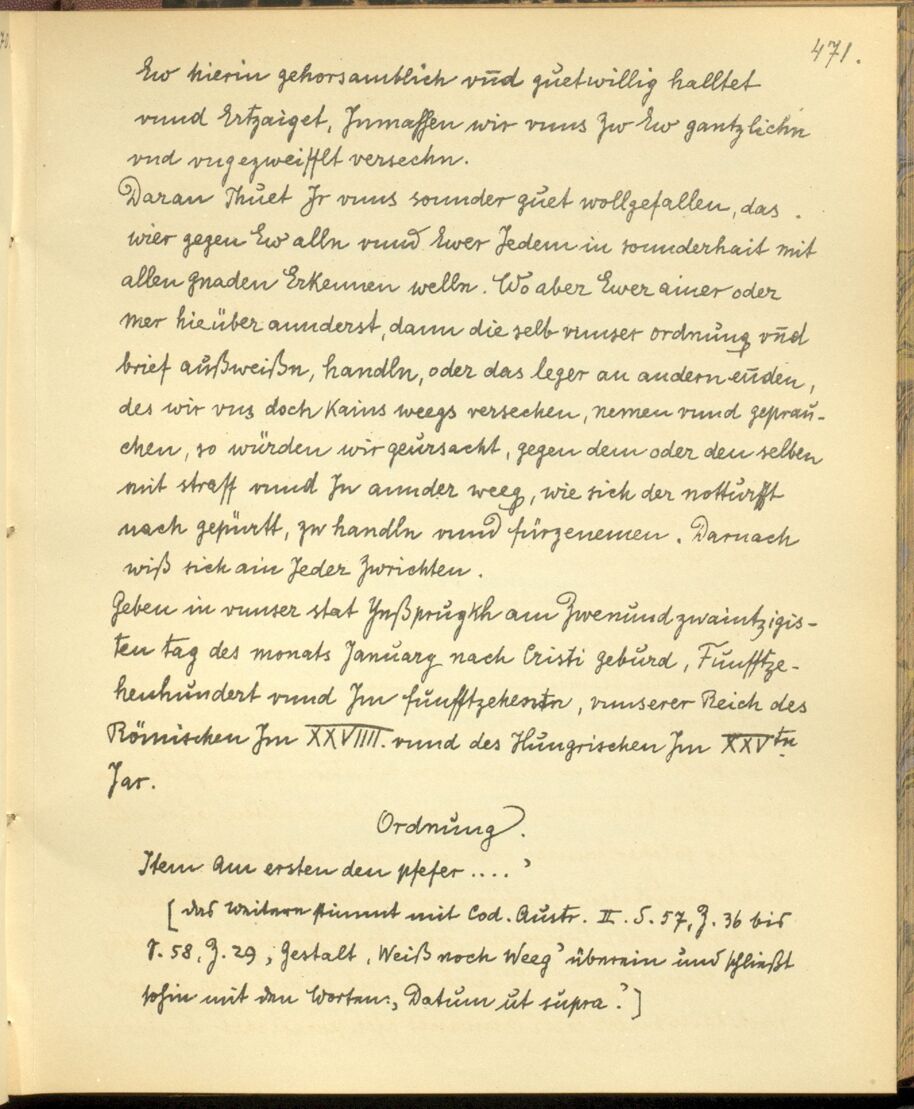 471.
Ew hierin gehorsamblich vn̄d guetwillig halltet
vnnd Ertzaiget, Inmassen wir vnns zw Ew gantzlichn
vnd vngezweifflt versechn.
Daran Thuet Jr vnns sonnder guet wollgefallen, das
wier gegen Ew alln vnnd Ewer Jedem in sonnderhait mit
allen gnaden Erkennen welln. Wo aber Ewer ainer oder
mer hieüber annderst, dann die selb vnnser ordnung vn̄d
brief außweißn, handln, oder das leger an andern enden,
des wir vns doch kains weegs versechen, nemen vnnd geprau-
chen, so würden wir geursacht, gegen dem oder den selben
mit straff vnnd In annder weeg, wie sich der notturfft
nach gepürtt, zw handln vnnd fürzenemen. Darnach
wiß sich ain Jeder zwrichten.
Geben in vnnser stat Ynßprugkh am Zwenundzwaintzigis-
ten tag des monats January nach Cristi geburd, Funfftze-
henhundert vnnd Im funfftzehentn, vnnserer Reich des
Römischen Im XXVIIII. vnnd des Hungrischen Im XXVtn
Jar.
Ordnung.
Item am ersten den pfefer .... ’
[das Weitere stimmt mit Cod. Austr. II. S. 57, Z. 36 bis
S. 58, Z. 29, Gestalt ‚Weiß noch Weeg’ überein und schließt
sohin mit den Worten: ‚Datum ut supra.’]